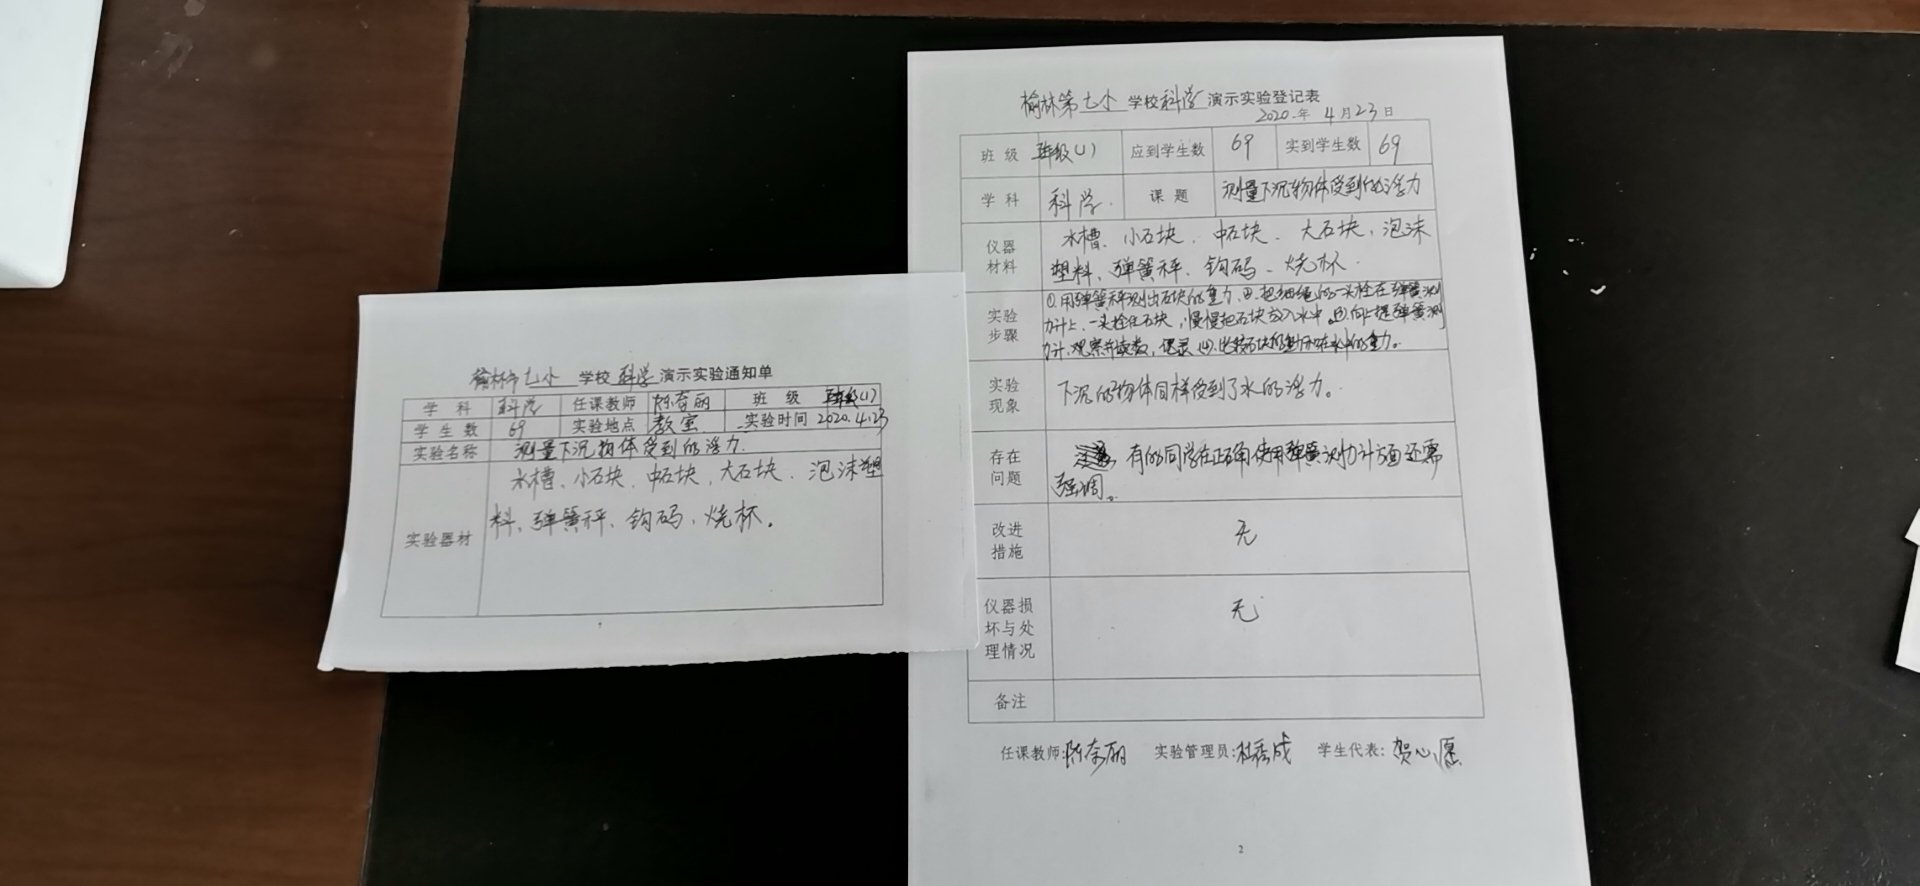 榆林市七小 学校 科学 演示实验通知单
学科 科学 任课教师 陈奋丽 班级 (1)
学生数 69 实验地点 教室 实验时间 2020.4.23
实验名称 测量下沉物体受到的浮力
实验器材 水槽、小石块、中石块、大石块、泡沫塑
料、弹簧秤、钩码、烧杯。
榆林第七小 学校 科学 演示实验登记表
2020年 4月23日
班级 (1) 应到学生数 69 实到学生数 69
学科 科学 课题 测量下沉物体受到的浮力
仪器材料 水槽、小石块、中石块、大石块、泡沫
塑料、弹簧秤、钩码、烧杯
实验步骤 ①用弹簧秤测出石块的重力、②把细绳的一头栓在弹簧测
力计上、一头栓住石块,慢慢把石块放入水中。③向上提弹簧测
力计、观察并读数,记录 ④比较石块的重力和在水中的重力。
实验现象 下沉的物体同样受到了水的浮力。
存在问题 有的同学在正确使用弹簧测力计方面还需
强调。
改进措施 无
仪器损坏与处理情况 无
备注
任课教师:陈奋丽 实验管理员: 学生代表:贺心愿
2